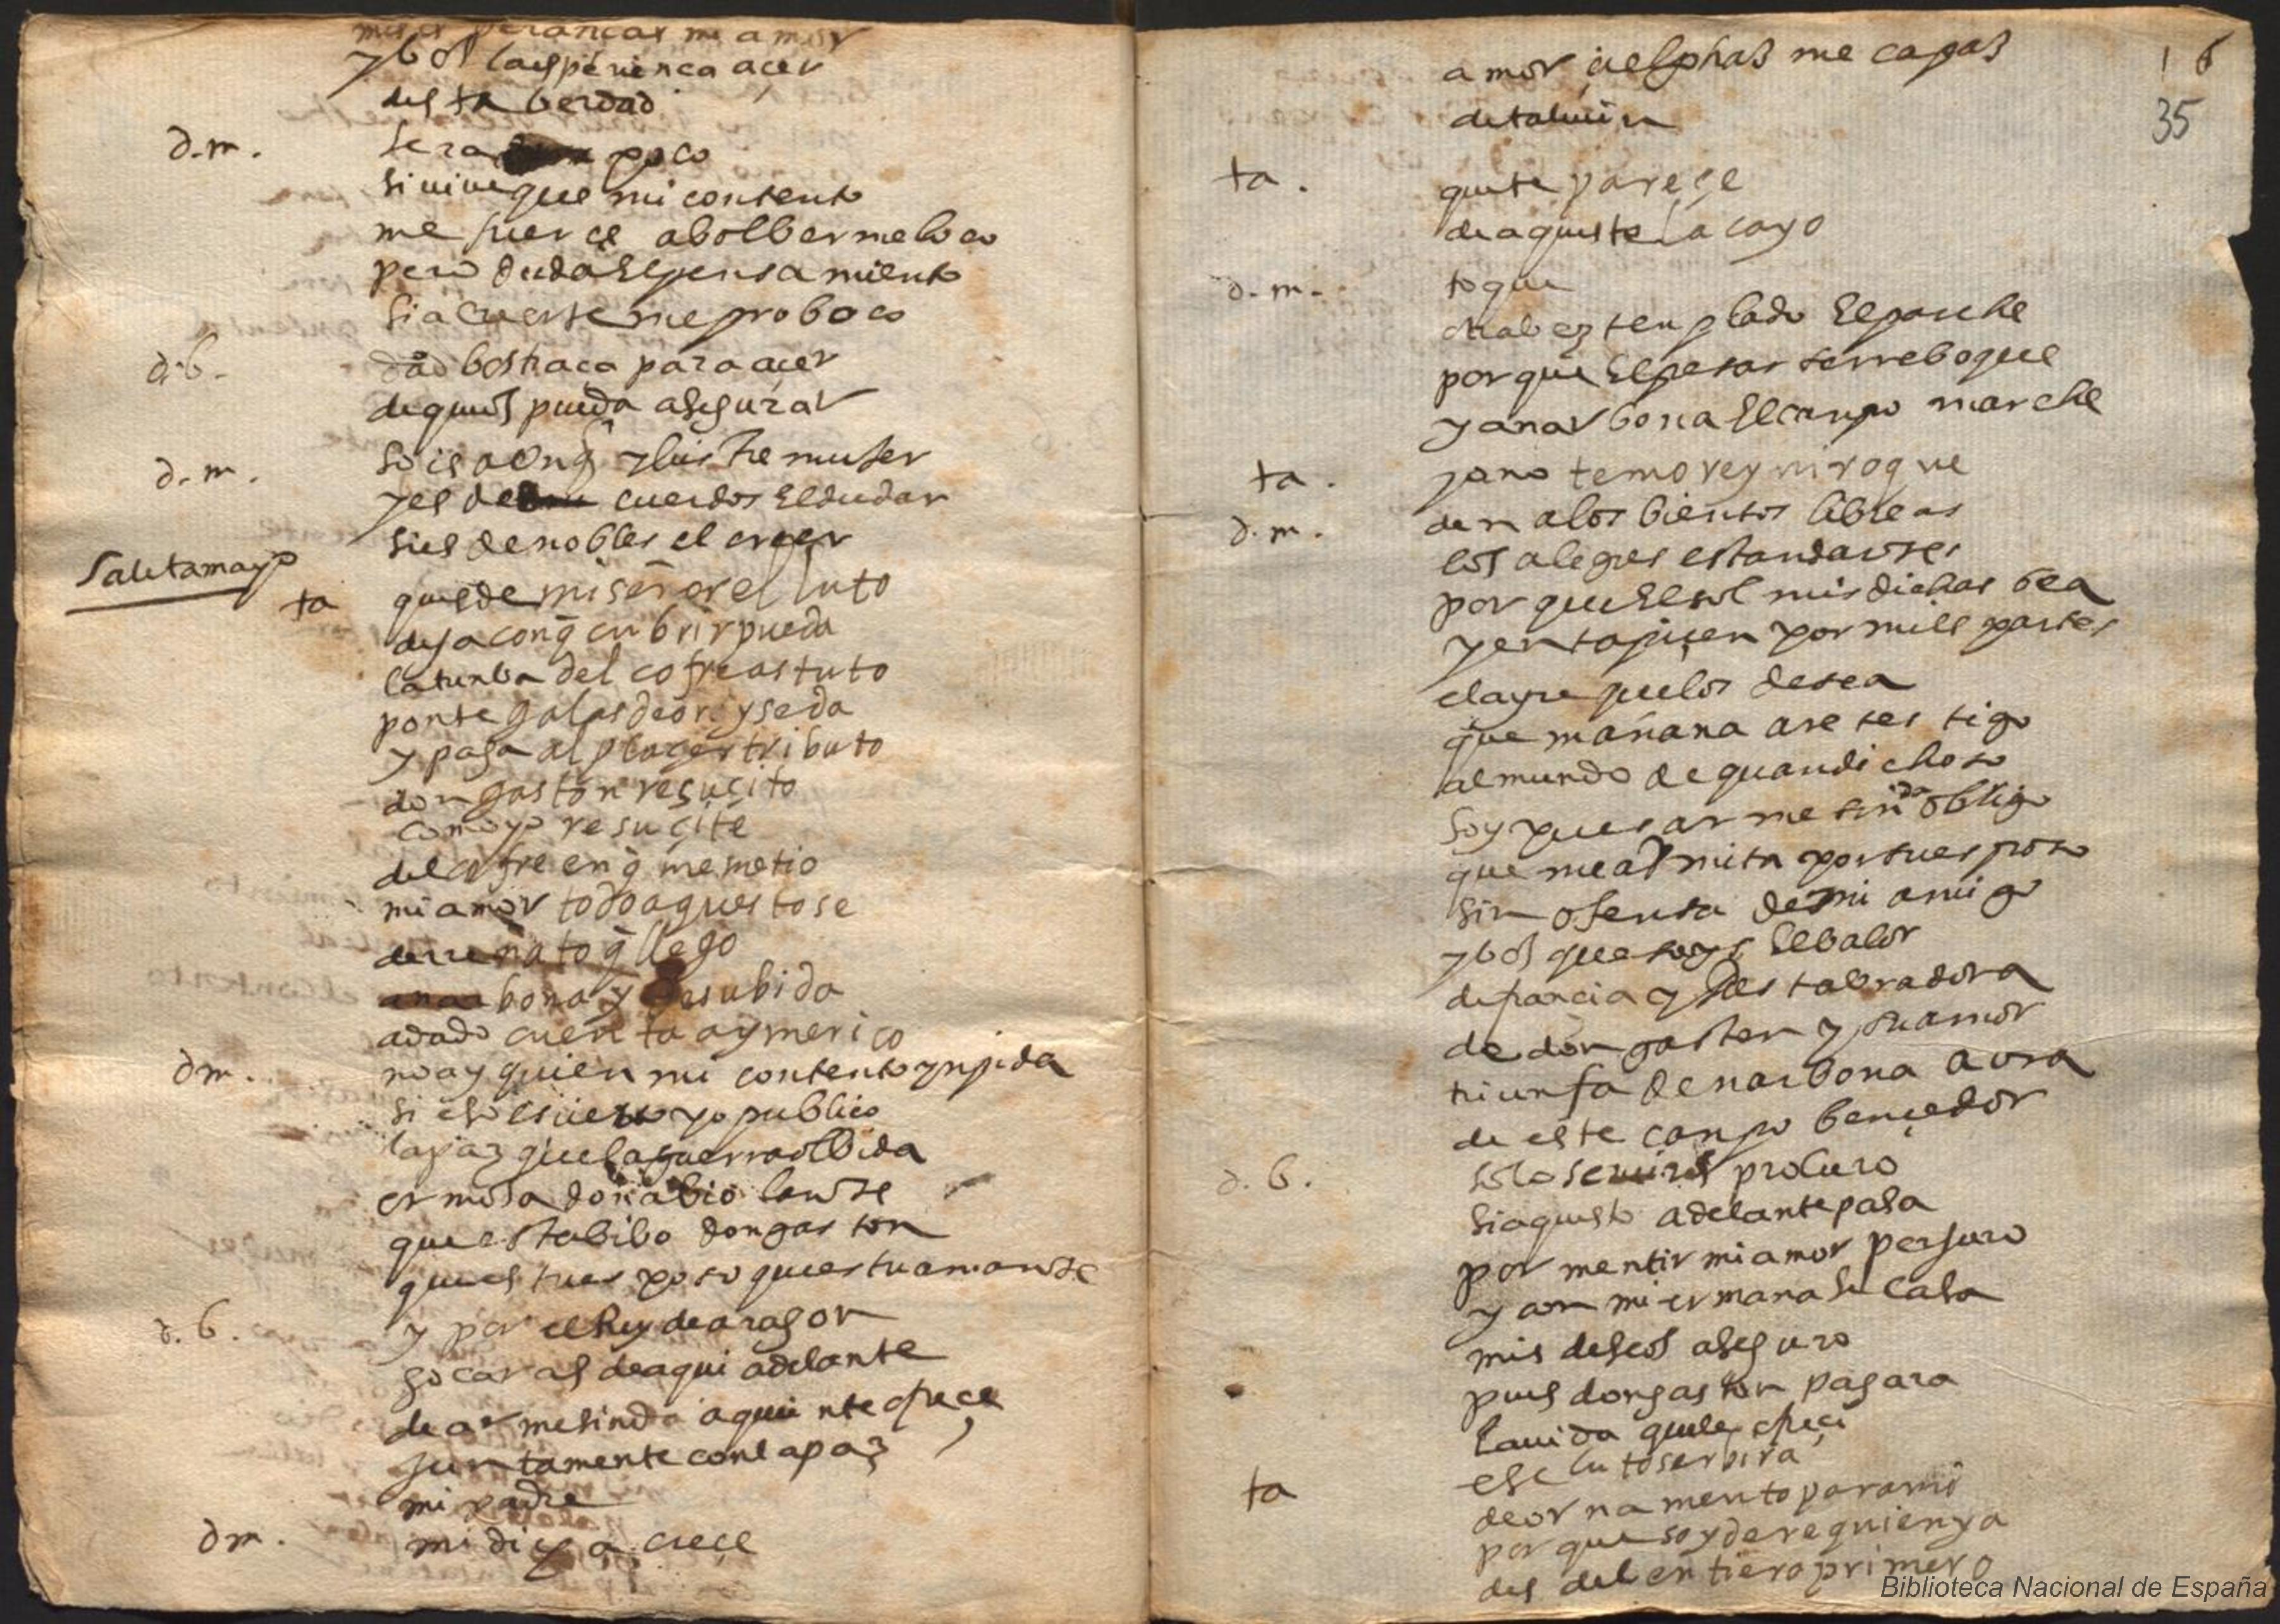 mis esperanças mi amor
y bos la espériença açer
desta berdad
d.m. sera poco
si vive que mi contento
me fuerçe a bolberme loco
pero duda El pensamiento
si a creerte me proboco
d.b. dad bos traça para açer
de que os pueda asegurar
d.m. sois al onq̄ yllustre muger
y es de cuerdos El dudar
si es de nobles el creer
Sale tamayo
ta quede mi señor el luto
deja con q̄ cubrir pueda
la tunba del cofre astuto
ponte galas de oro y seda
y paga al plaçer tributo
don gaston resuçito
como yo resuçite
del cofre en q̄ me metio
mi amor todo aquesto se
de renato q̄ llego
bona y de su bida
a dado cuenta aymerico
dm. no ay quien mi contento ynpida
si eso es çierto yo publico
la paz que la guerra olbida
ermosa doña biolante
que esta bibo don gaston
que es tu esposo que es tu amante
d.b. y por el Rey de aragon
goçaras de aqui adelante
de armesinda a quien te ofreçe
juntamente con la paz
mi padre
dm. mi dicha creçe
16
35
amor çelphas me cagas
de taluin
ta. que te pareçe
de aqueste lacayo
d.m. toque
ral ez tenplado El parche
porque El pesar se rreboque
y a narbona El canpo marche
ta. ya no temo rey ni roque
d.m. den a los bientos libreas
los alegres estandartes
por que El sol mis dichas bea
y entapiçen por mill partes
el ayre que los desea
que mañana are testigo
al mundo de quan dichoso
soy pues a armesinda obligo
que me admita por su esposo
sin ofensa de mi amigo
y bos que soys El balor
de françia y Restabradora
de don gaston y su amor
triunfa de narbona aora
de este canpo bençedor
d.b. solo serviros procuro
si aquesto adelante pasa
por mentir mi amor perjuro
y con mi ermana se casa
mis deseos aseguro
pues don gaston pagara
la vida que le ofreçi
ta ese luto serbira
de ornamento para mi
por que soy de requien ya
des del entiero primero
Biblioteca Nacional de España